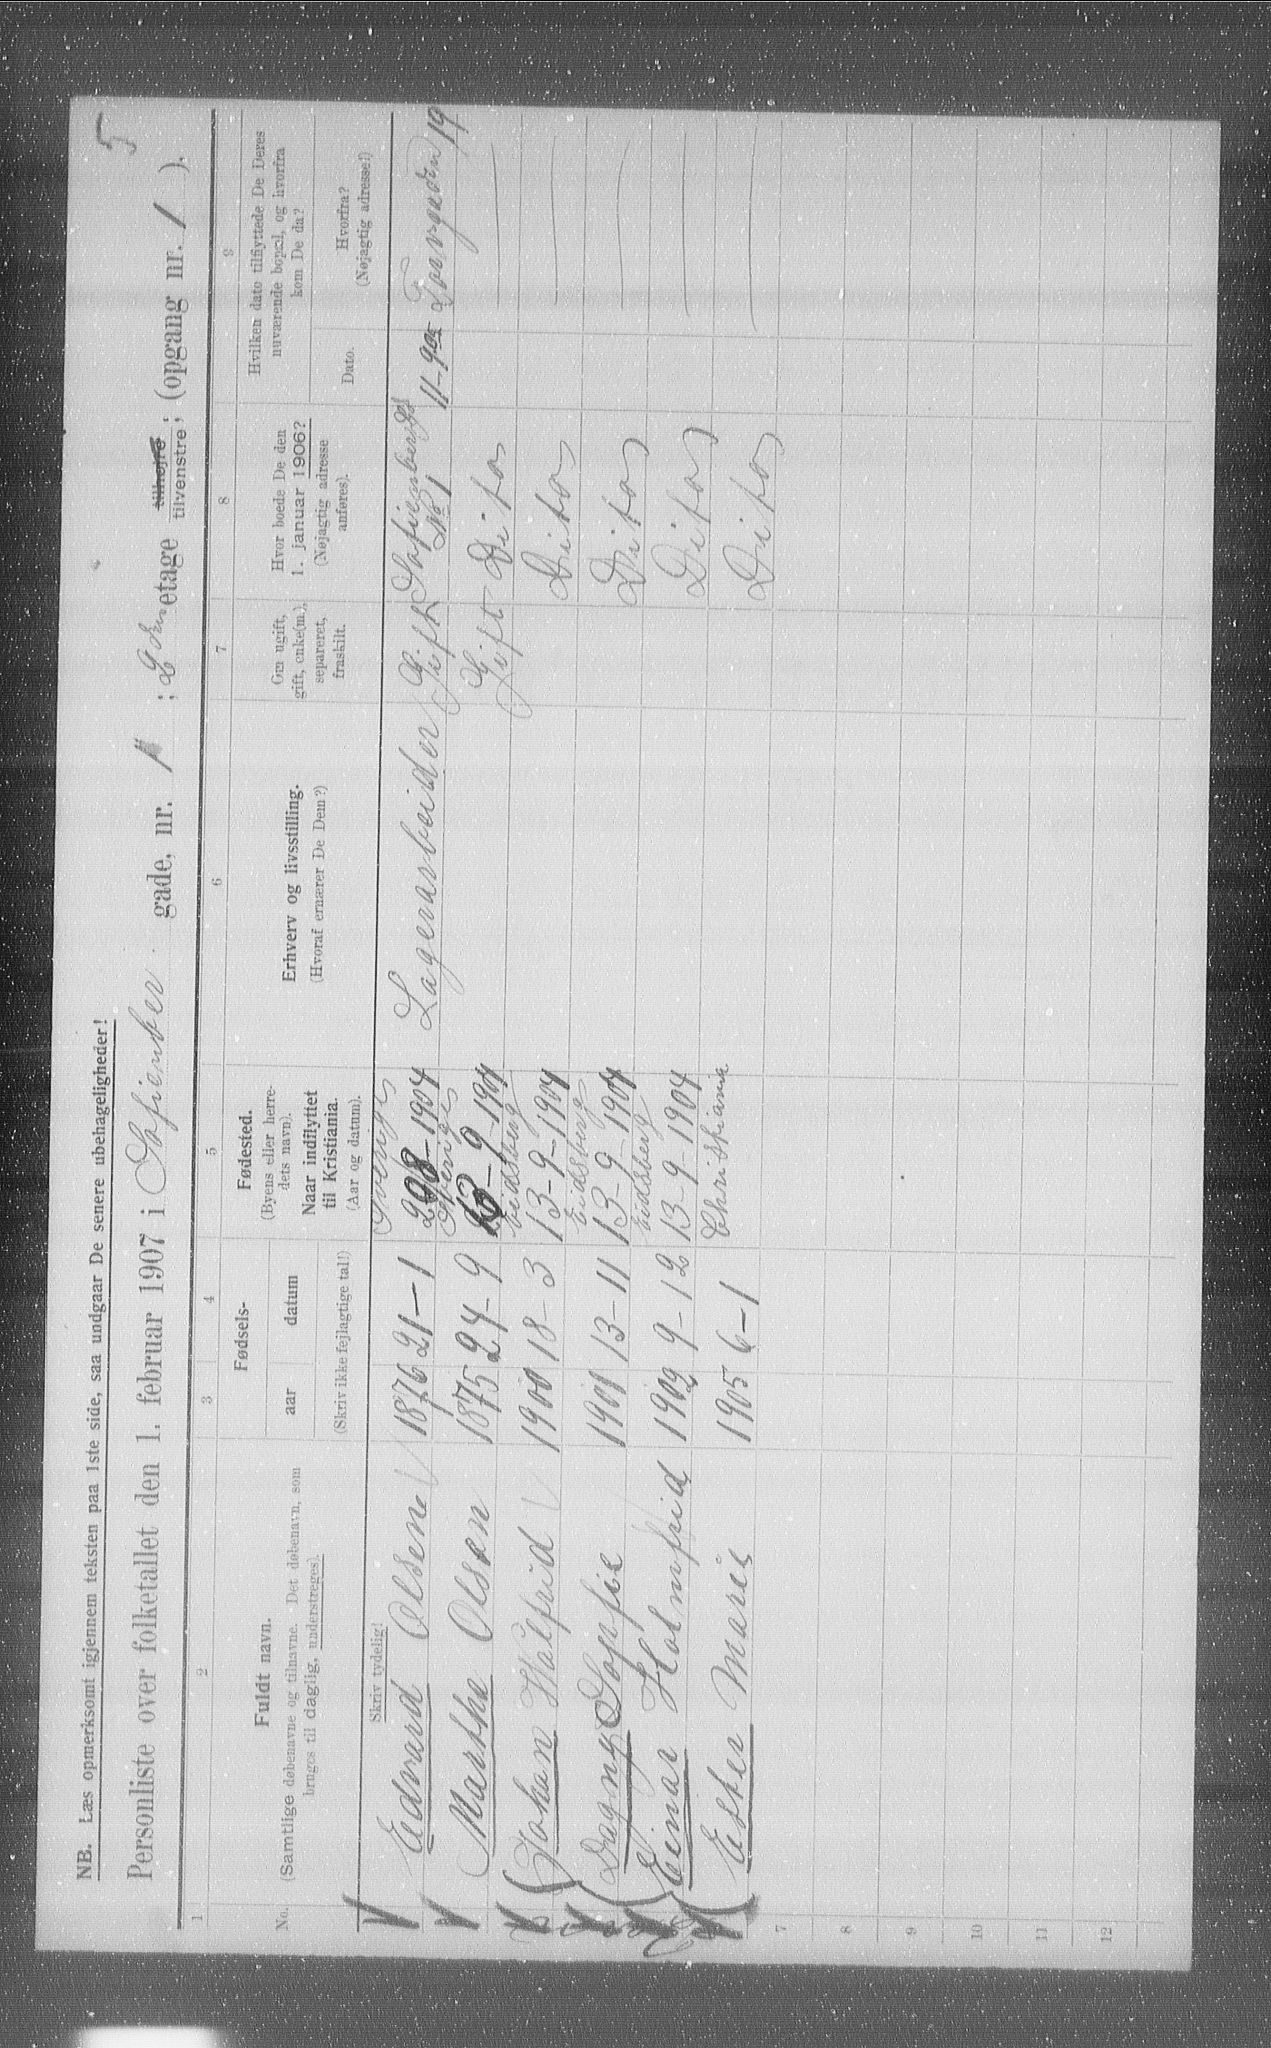 5
NB. Læs opmerksomt igjennem teksten paa 1ste side, saa undgaar De senere ubehageligheder!
Personliste over folketallet den 1. februar 1907 i Sofienber gade, nr. 1 ; 2den etage tilhøjre tilvenstre ; (opgang nr. 1 ).
1 2 3 4 5 6 7 8 9
No. Fuldt navn. (Samtlige døbenavne og tilnavne. Det døbenavn, som bruges til daglig, understreges).
Fødsels- aar datum (Skriv ikke fejlagtige tal!)
Fødested. (Byens eller herredets navn). Naar indflyttet til Kristiania. (Aar og datum).
Erhverv og livsstilling. (Hvoraf ernærer De Dem?)
Om ugift, gift, enke(m.), separeret, fraskilt.
Hvor boede De den 1. januar 1906? (Nøjagtig adresse anføres).
Hvilken dato tilflyttede De Deres nuværende bopæl, og hvorfra kom De da?
Dato. Hvorfra? (Nøjagtig adresse!)
Skriv tydelig!
Edvard Olsen 1876 21-1 Sverige 1904 Lagerarbeider Gift Sofienbergg No 1 11-9 Torvgaden 19
Martha Olsen 1875 24-9 Sverige 13-9-1904 Gift Ditos
Johan Halfrid 1900 18-3 Eidsberg 13-9-1904 Ditos
Dagny Sopfie 1901 13-11 Eidsberg 13-9-1904 Ditos
Einar Holmfrid 1902 9-12 Eidsberg 13-9-1904 Ditos
Ester Marie 1905 6-1 Christiania Ditos
7
8
9
10
11
12